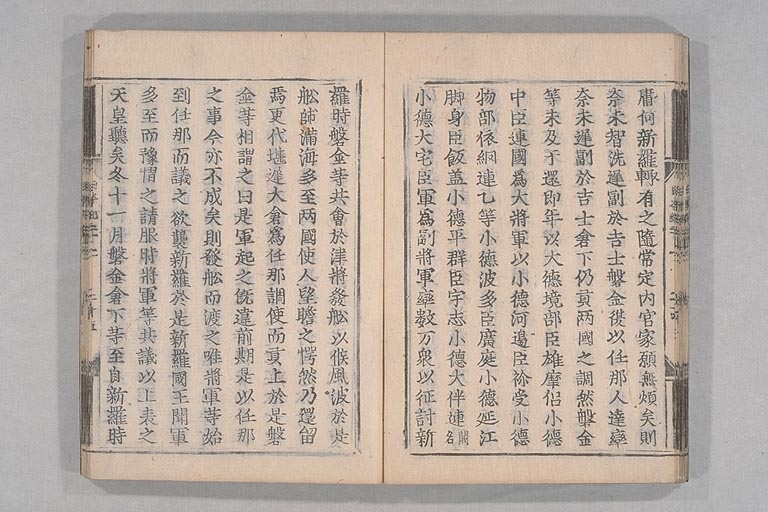 庸何新羅輙有之隨常定内官家願無煩矣則
奈末智洗遲副於吉士磐金復以任那人達率
奈末遲副於吉士倉下仍貢兩國之調然磐金
等未及于還即年以大德境部臣雄摩侶小德
中臣連國爲大將軍以小德河邊臣祢受小德
物部依網連乙等小德波多臣廣庭小德近江
脚身臣飯盖小德平群臣宇志小德大伴連名闕
小德大宅臣軍爲副將軍率數万衆以征討新
羅時磐金等共會於津將發舩以候風波於是
舩師滿海多至兩國使人望瞻之愕然乃還留
焉更代堪遲大倉爲任那調使而貢上於是磐
金等相謂之曰是軍起之旣違前期是以任那
之事今亦不成矣則發舩而渡之唯將軍等始
到任那而議之欲襲新羅於是新羅國王聞軍
多至而豫慴之請服時將軍等共議以上表之
天皇聽矣冬十一月磐金倉下等至自新羅時